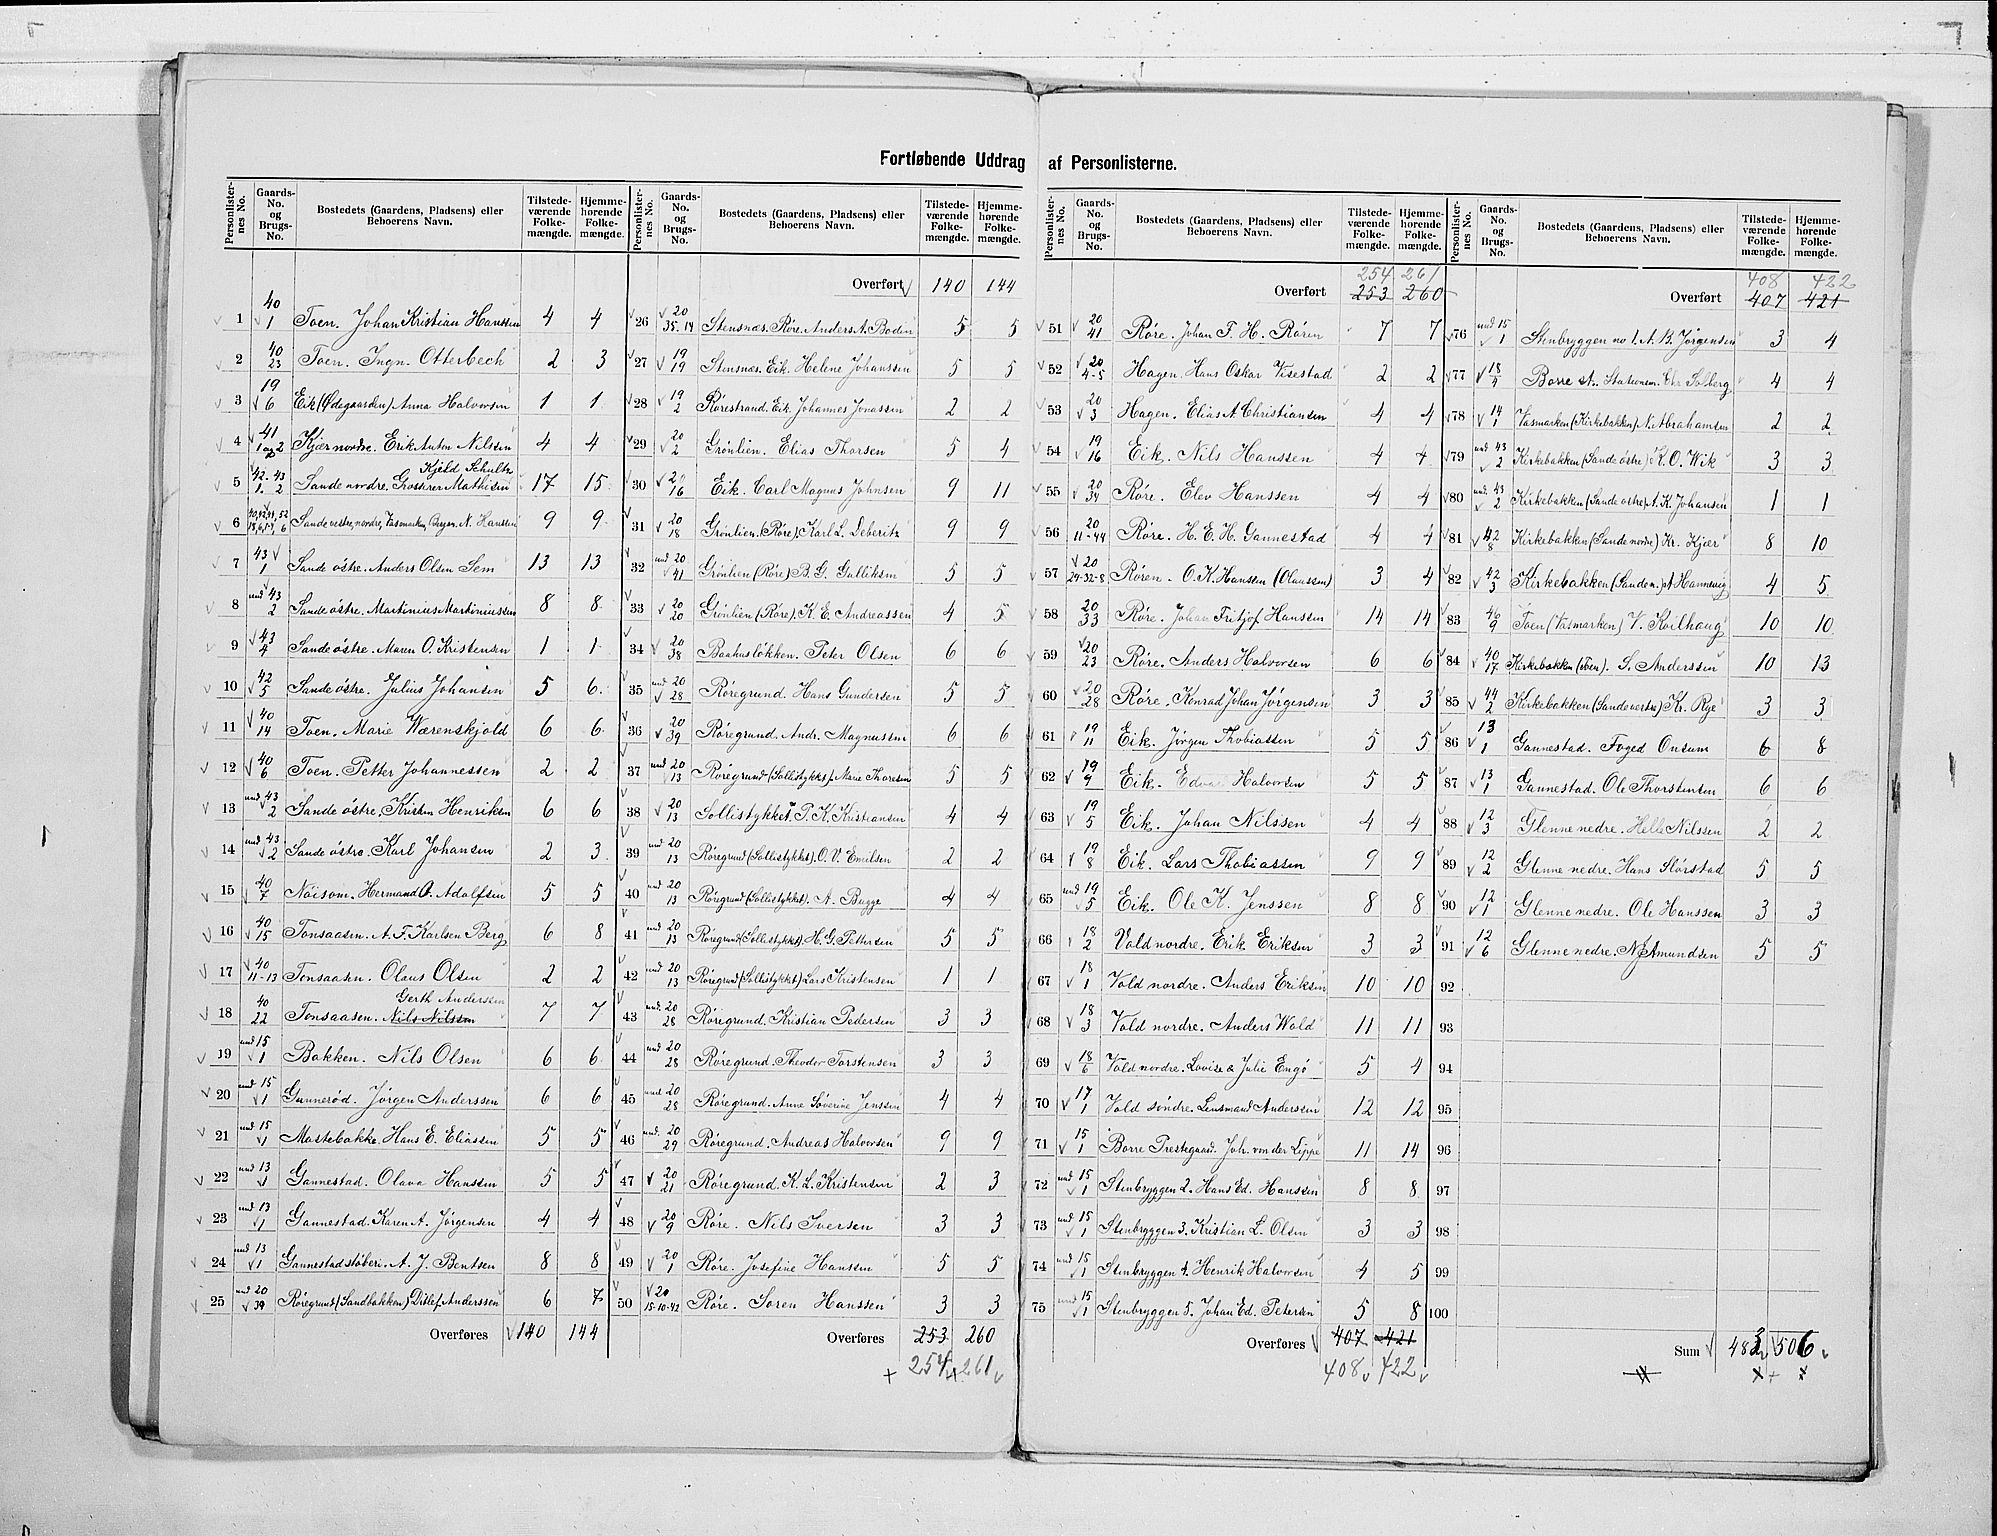 Fortløbende Uddrag af Personlisterne.
Personlister-nes No. Gaards-No. og Brugs-No. Bostedets (Gaardens, Pladsens) eller Beboerens Navn. Tilstede-værende Folke-mængde. Hjemme-hørende Folke-mængde.
1 40/1 Toen. Johan Kristian Hanssen 4 4
2 40/23 Toen. Ingn. Otterbech 2 3
3 19/6 Eik (Ødegaarden) Anna Halvorsen 1 1
4 41/1 og 2 Kjær nordre. Erik Anton Nilsen 4 4
Kjeld Schultz
5 42-43/1-2 Sande nordre. Grosserer Mathisen 17 15
6 Sande vestre, nordre, Vasmarken, Bryn. N. Hanssen 9 9
7 43/1 Sande østre. Anders Olsen Sem 13 13
8 und 43/2 Sande østre. Martinius Martiniussen 8 8
9 43/4 Sande østre. Maren O. Kristensen 1 1
10 42/5 Sande østre. Julius Johansen 5 6
11 40/14 Toen. Marie Wærenskjold 6 6
12 40/6 Toen. Petter Johannessen 2 2
13 und 43/2 Sande østre. Kristen Henriksen 6 6
14 und 43/2 Sande østre. Karl Johansen 2 3
15 40/7 Nöisom. Hermand O. Adolfsen 5 5
16 40/15 Tonsaasen. A. F. Karlsen Berg 6 8
17 40/11-13 Tonsaasen. Olaus Olsen 2 2
Gerth Andersen
18 40/22 Tonsaasen. Nils Nilsen 7 7
19 und 15/1 Bakken. Nils Olsen 6 6
20 und 15/1 Gunnerød. Jørgen Anderssen 6 6
21 und 15/1 Mastebakke. Hans E. Eliassen 5 5
22 und 13/1 Gannestad. Olava Hanssen 5 5
23 und 13/1 Gannestad. Karen A. Jørgensen 4 4
24 und 13/1 Gannestadstøberi. A. J. Bentsen 8 8
25 und 20/39 Røregrund (Sandbakken) Ditlef Anderssen 6 7
Overføres 140 144
Personlister-nes No. Gaards-No. og Brugs-No. Bostedets (Gaardens, Pladsens) eller Beboerens Navn. Tilstede-værende Folke-mængde. Hjemme-hørende Folke-mængde.
Overført 140 144
26 20/35.14 Stensnæs. Røre. Anders A. Bodin 5 5
27 19/19 Stensnæs. Eik. Helene Johanssen 5 5
28 19/2 Rørestrand. Eik. Johannes Jonassen 2 2
29 20/2 Grønlien. Elias Thorsen 5 4
30 20/16 Eik. Carl Magnus Johnsen 9 11
31 20/18 Grønlien. (Røre). Karl L. Deberitz 9 9
32 und 20/41 Grønlien (Røre) B. G. Gulliksen 5 5
33 20/20 Grønlien (Røre). K. E. Andreassen 4 5
34 20/38 Baahusløkken. Peter Olsen 6 6
35 und 20/28 Røregrund. Hans Gundersen 5 5
36 20/39 Røregrund. Andr. Magnussen 6 6
37 und 20/13 Røregrund (Sollistykket) Marie Thoresen 5 5
38 20/13 Sollistykket. P. K. Kristiansen 4 4
39 und 20/13 Røregrund (Sollistykket). O. V. Emilsen 2 2
40 und 20/13 Røregrund (Sollistykket). A. Bugge 4 4
41 und 20/13 Røregrund (Sollistykket). H. G. Pettersen 5 5
42 und 20/13 Røregrund (Sollistykket) Lars Kristensen 1 1
43 und. 20/28 Røregrund. Kristian Pedersen 3 3
44 und 20/28 Røregrund. Theodor Torstensen 3 3
45 und 20/28 Røregrund. Anne Severine Jenssen 4 4
46 und. 20/29 Røregrund. Andreas Halvorsen 9 9
47 20/21 Røregrund. K. L. Kristensen 2 3
48 20/9 Røre. Nils Iversen 3 3
49 20/1 Røre. Josefine Hanssen 5 5
50 20/15-10-42 Røre. Søren Hanssen 3 3
Overføres 253 260
254 261
Personlister-nes No. Gaards-No. og Brugs-No. Bostedets (Gaardens, Pladsens) eller Beboerens Navn. Tilstede-værende Folke-mængde. Hjemme-hørende Folke-mængde.
254 261
Overført 253 260
51 20/41 Røre. Johan F. H. Røren 7 7
52 20/4-5 Hagen. Hans Oskar Visestad 2 2
53 20/3 Hagen. Elias A. Christiansen 4 4
54 19/16 Eik. Nils Hanssen 4 4
55 20/34 Røre. Elev Hanssen 4 4
56 20/11-44 Røre. H. E. H. Gannestad 4 4
57 20/29-32-8 Røren. O. K. Hanssen (Olaussen) 3 4
58 20/33 Røre. Johan Fritjof Hanssen 14 14
59 20/23 Røre. Anders Halvorsen 6 6
60 20/28 Røre. Konrad Johan Jørgensen 3 3
61 19/11 Eik. Jørgen Thobiassen 5 5
62 19/9 Eik. Edvard Halvorsen 5 5
63 19/5 Eik. Johan Nilssen 4 4
64 19/8 Eik. Lars Thobiassen 9 9
65 und 19/5 Eik. Ole K. Jenssen 8 8
66 18/2 Vold nordre. Erik Eriksen 3 3
67 18/1 Vold nordre. Anders Eriksen 10 10
68 18/3 Vold nordre. Anders Wold 11 11
69 18/6 Vold nordre. Lovise & Julie Engø 5 4
70 17/1 Vold søndre. Lensmand Anderssen 12 12
71 15/1 Borre Prestegaard. Joh. von der Lippe 11 14
72 und 15/1 Stenbryggen 2. Hans Ed. Hanssen 8 8
73 und 15/1 Stenbryggen 3. Kristian L. Olsen 3 3
74 und 15/1 Stenbryggen 4. Henrik Halvorsen 4 5
75 und 15/1 Stenbryggen 5. Johan Ed. Petersen 5 8
Overføres 407 421
408 422
Personlister-nes No. Gaards-No. og Brugs-No. Bostedets (Gaardens, Pladsens) eller Beboerens Navn. Tilstede-værende Folke-mængde. Hjemme-hørende Folke-mængde.
408 422
Overført 407 421
76 und 15/1 Stenbryggen no 1. A. B. Jørgensen 3 4
77 18/4 Borre st. Stationsm. Chr Solberg 4 4
78 14/1 Vasmarken (Kirkebakken) N. Abrahamsen 2 2
79 und 43/2 Kirkebakken (Sande østre) K. O. Wik 3 3
80 und. 43/2 Kirkebakken (Sande østre) A. K. Johansen 1 1
81 42/8 Kirkebakken (Sande nordre) Kr. Kjær 8 10
82 42/3 Kirkebakken (Sande n.) A Hannevig 4 5
83 40/9 Toen (Vasmarken) V. Kvilhaug 10 10
84 40/17 Kirkebakken (Toen). S. Anderssen 10 13
85 44/2 Kirkebakken (Sande vestre) Kr. Rye 3 3
86 13/1 Gannestad. Foged Onsum 6 8
87 13/1 Gannestad. Ole Thorstensen 6 6
88 12/3 Glenne nedre. Helle Nilssen 2 2
89 12/2 Glenne nedre. Hans Størstad 5 5
90 12/1 Glenne nedre. Ole Hanssen 3 3
91 12/6 Glenne nedre. N. Amundsen 5 5
92
93
94
95
96
97
98
99
100
Sum 483 506